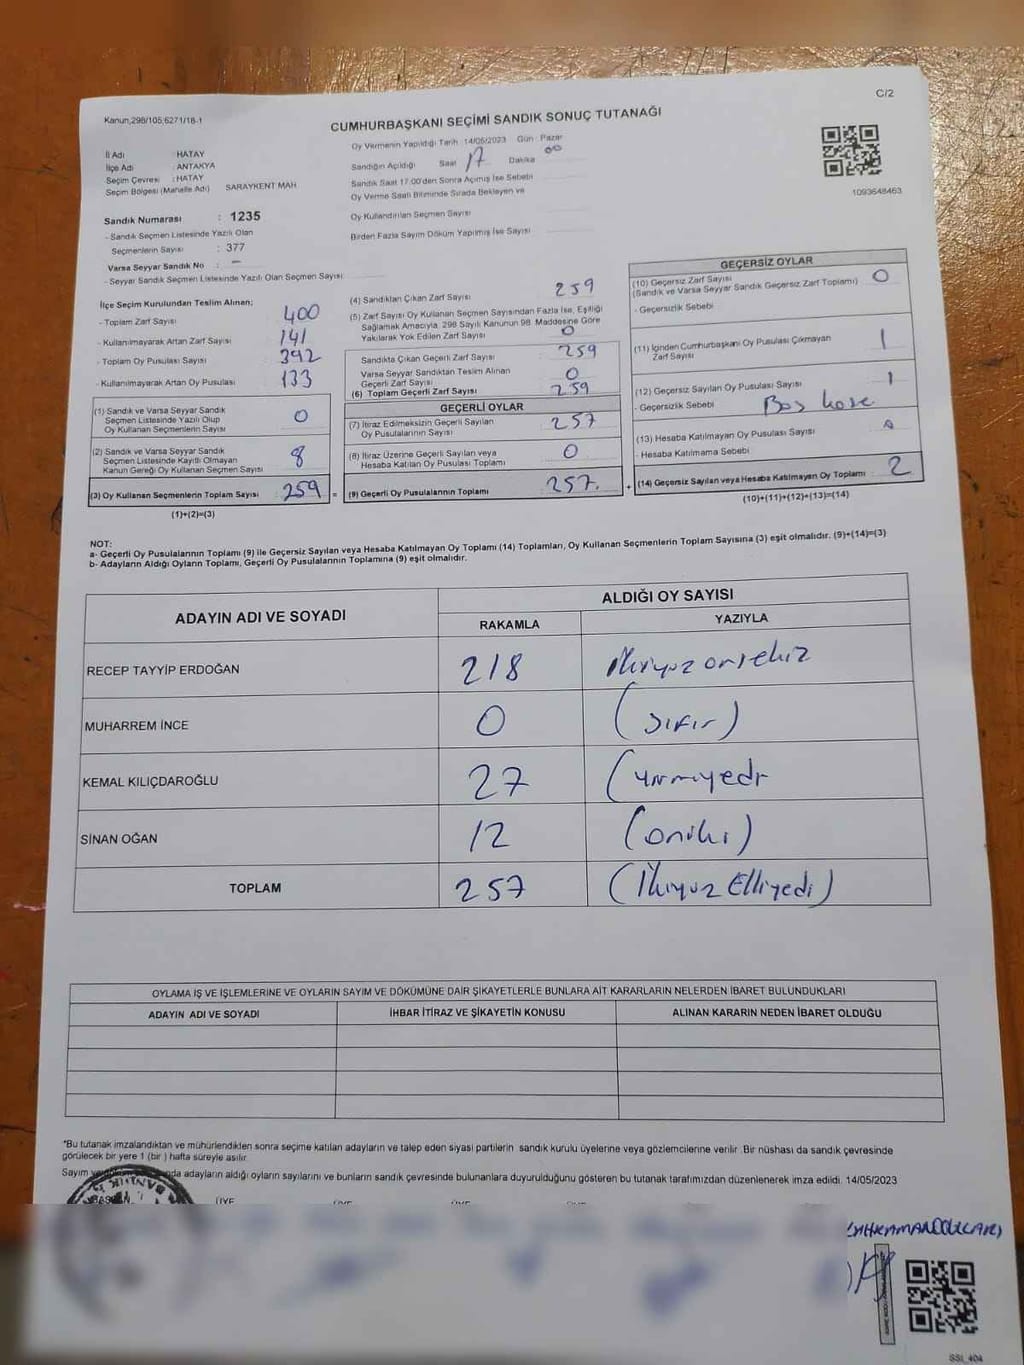 C/2
Kanun,298/105;6271/18-1
CUMHURBAŞKANI SEÇİMİ SANDIK SONUÇ TUTANAĞI
Oy Vermenin Yapıldığı Tarih 14/05/2023 Gün : Pazar
İl Adı : HATAY
İlçe Adı : ANTAKYA
Seçim Çevresi : HATAY
Seçim Bölgesi (Mahalle Adı) SARAYKENT MAH
Sandığın Açıldığı Saat 17 Dakika 00
Sandık Saat 17:00'den Sonra Açılmış İse Sebebi
Oy Verme Saati Bitiminde Sırada Bekleyen ve
Oy Kullandırılan Seçmen Sayısı
Birden Fazla Sayım Döküm Yapılmış İse Sayısı
1093648463
Sandık Numarası : 1235
- Sandık Seçmen Listesinde Yazılı Olan
Seçmenlerin Sayısı : 377
Varsa Seyyar Sandık No : —
- Seyyar Sandık Seçmen Listesinde Yazılı Olan Seçmen Sayısı:
İlçe Seçim Kurulundan Teslim Alınan;
- Toplam Zarf Sayısı 400
- Kullanılmayarak Artan Zarf Sayısı 141
- Toplam Oy Pusulası Sayısı 392
- Kullanılmayarak Artan Oy Pusulası 133
(1) Sandık ve Varsa Seyyar Sandık
Seçmen Listesinde Yazılı Olup
Oy Kullanan Seçmenlerin Sayısı 0
(2) Sandık ve Varsa Seyyar Sandık
Seçmen Listesinde Kayıtlı Olmayan
Kanun Gereği Oy Kullanan Seçmen Sayısı 8
(3) Oy Kullanan Seçmenlerin Toplam Sayısı 259 =
(1)+(2)=(3)
(4) Sandıktan Çıkan Zarf Sayısı 259
(5) Zarf Sayısı Oy Kullanan Seçmen Sayısından Fazla İse, Eşitliği
Sağlamak Amacıyla, 298 Sayılı Kanunun 98. Maddesine Göre
Yakılarak Yok Edilen Zarf Sayısı 0
Sandıkta Çıkan Geçerli Zarf Sayısı 259
Varsa Seyyar Sandıktan Teslim Alınan
Geçerli Zarf Sayısı 0
(6) Toplam Geçerli Zarf Sayısı 259
GEÇERLİ OYLAR
(7) İtiraz Edilmeksizin Geçerli Sayılan
Oy Pusulalarının Sayısı 257
(8) İtiraz Üzerine Geçerli Sayılan veya
Hesaba Katılan Oy Pusulası Toplamı 0
(9) Geçerli Oy Pusulalarının Toplamı 257. +
GEÇERSİZ OYLAR
(10) Geçersiz Zarf Sayısı
(Sandık ve Varsa Seyyar Sandık Geçersiz Zarf Toplamı) 0
- Geçersizlik Sebebi
(11) İçinden Cumhurbaşkanı Oy Pusulası Çıkmayan
Zarf Sayısı 1
(12) Geçersiz Sayılan Oy Pusulası Sayısı 1
- Geçersizlik Sebebi Boş
(13) Hesaba Katılmayan Oy Pusulası Sayısı
- Hesaba Katılmama Sebebi
(14) Geçersiz Sayılan veya Hesaba Katılmayan Oy Toplamı 2
(10)+(11)+(12)+(13)=(14)
NOT:
a- Geçerli Oy Pusulalarının Toplamı (9) ile Geçersiz Sayılan veya Hesaba Katılmayan Oy Toplamı (14) Toplamları, Oy Kullanan Seçmenlerin Toplam Sayısına (3) eşit olmalıdır. (9)+(14)=(3)
b- Adayların Aldığı Oyların Toplamı, Geçerli Oy Pusulalarının Toplamına (9) eşit olmalıdır.
ADAYIN ADI VE SOYADI ALDIĞI OY SAYISI
RAKAMLA YAZIYLA
RECEP TAYYİP ERDOĞAN 218 ikiyüzonsekiz
MUHARREM İNCE 0 (sıfır)
KEMAL KILIÇDAROĞLU 27 (yirmiyedi
SİNAN OĞAN 12 (oniki)
TOPLAM 257 (İkiyüz Elliyedi)
OYLAMA İŞ VE İŞLEMLERİNE VE OYLARIN SAYIM VE DÖKÜMÜNE DAİR ŞİKAYETLERLE BUNLARA AİT KARARLARIN NELERDEN İBARET BULUNDUKLARI
ADAYIN ADI VE SOYADI İHBAR İTİRAZ VE ŞİKAYETİN KONUSU ALINAN KARARIN NEDEN İBARET OLDUĞU
*Bu tutanak imzalandıktan ve mühürlendikten sonra seçime katılan adayların ve talep eden siyasi partilerin sandık kurulu üyelerine veya gözlemcilerine verilir. Bir nüshası da sandık çevresinde
görülecek bir yere 1 (bir ) hafta süreyle asılır.
Sayım adayların aldığı oyların sayılarını ve bunların sandık çevresinde bulunanlara duyurulduğunu gösteren bu tutanak tarafımızdan düzenlenerek imza edildi. 14/05/2023
BAŞKAN ÜYE ÜYE ÜYE ÜYE
SSI_404